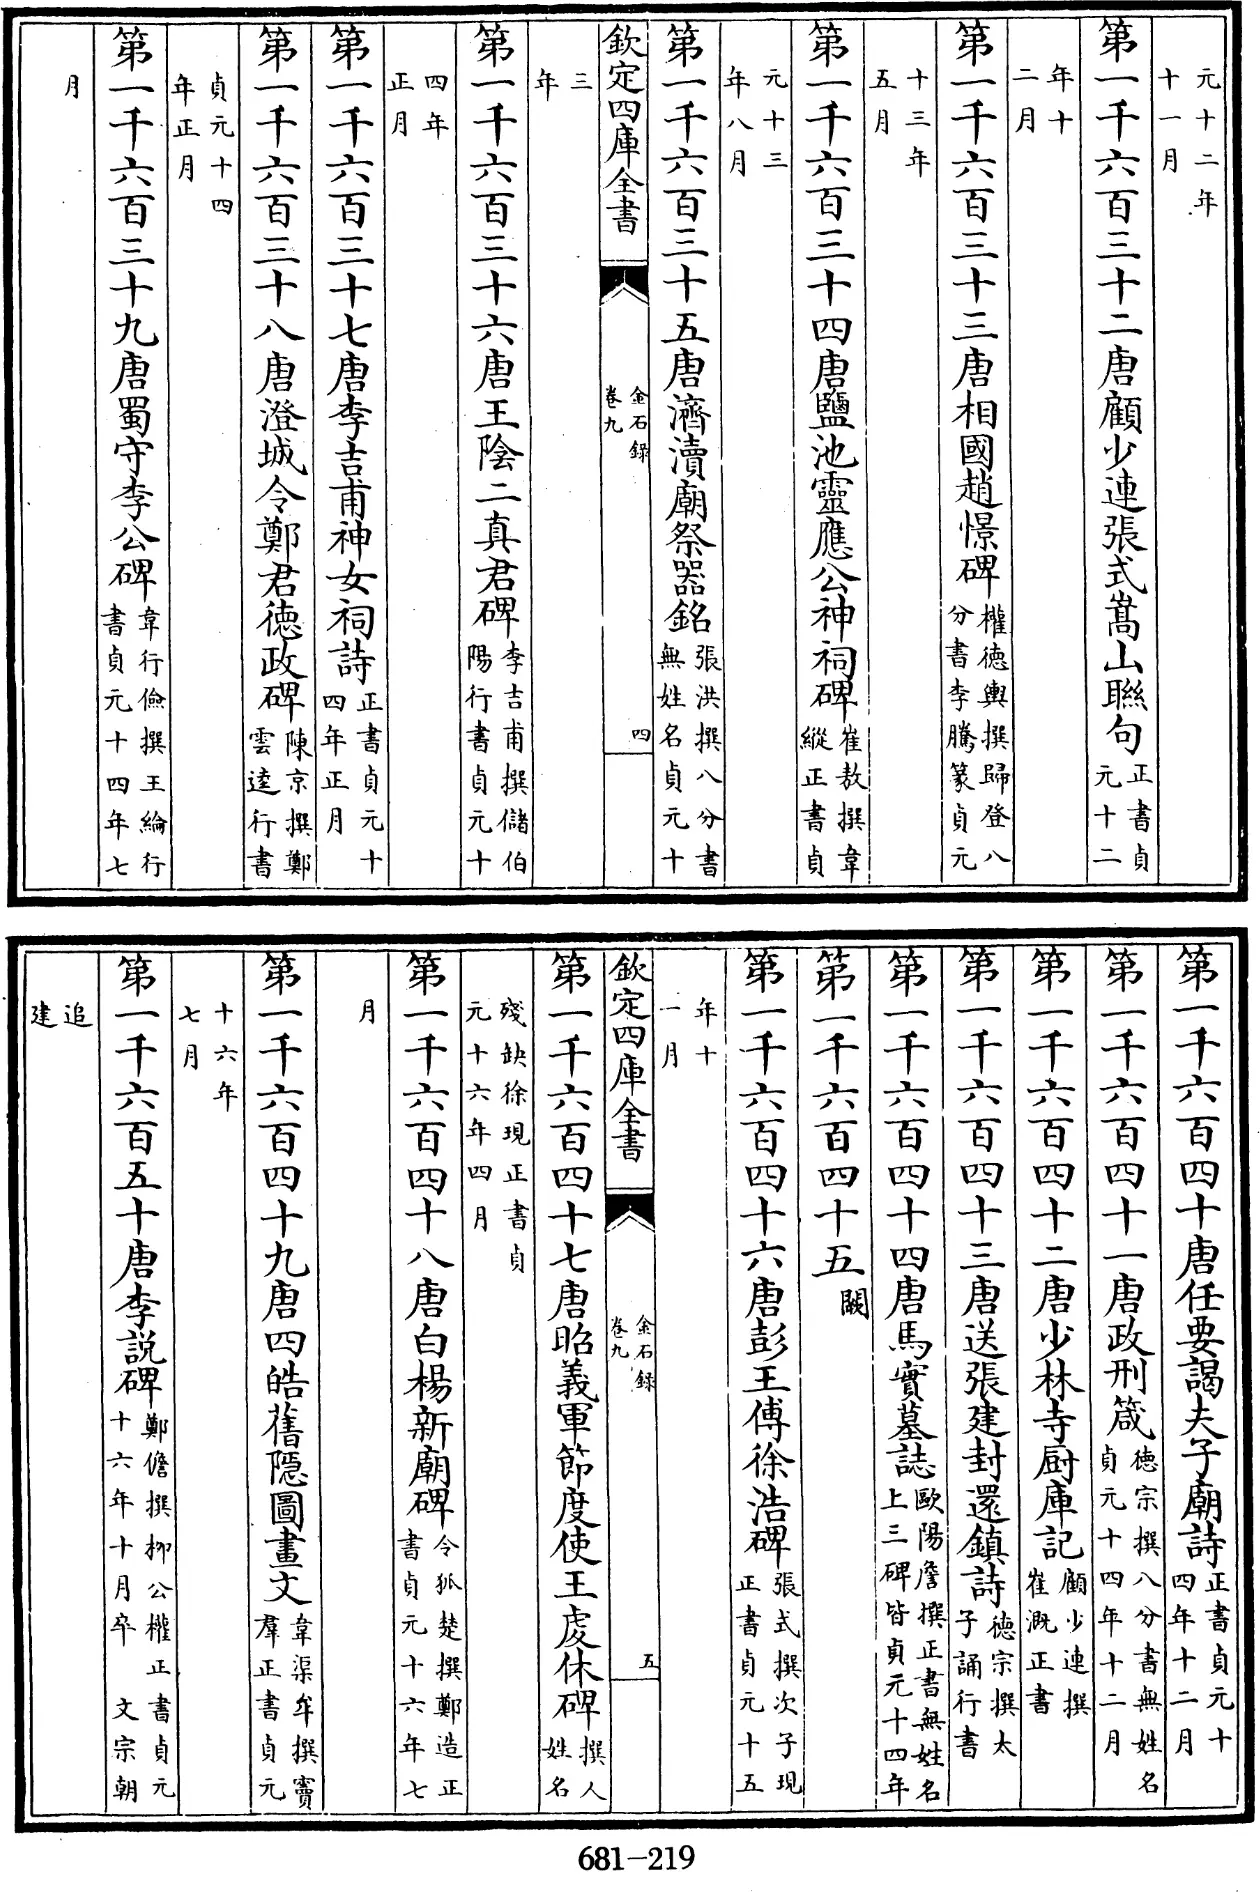 元十二年
十一月
第一千六百三十二唐顧少連張式嵩山聯句正書貞元十二
年十
二月
第一千六百三十三唐相國趙憬碑權德輿撰歸登八分書李騰篆貞元
十三年
五月
第一千六百三十四唐鹽池靈應公神祠碑崔敖撰韋縱正書貞
元十三
年八月
第一千六百三十五唐濟瀆廟祭器銘張洪撰八分書無姓名貞元十
欽定四庫全書
金石錄
卷九
四
三
年
第一千六百三十六唐王陰二真君碑李吉甫撰儲伯陽行書貞元十
四年
正月
第一千六百三十七唐李吉甫神女祠詩正書貞元十四年正月
第一千六百三十八唐澄城令鄭君德政碑陳京撰鄭雲逵行書
貞元十四
年正月
第一千六百三十九唐蜀守李公碑韋行儉撰王綸行書貞元十四年七
月
第一千六百四十唐任要謁夫子廟詩正書貞元十四年十二月
第一千六百四十一唐政刑箴德宗撰八分書無姓名貞元十四年十二月
第一千六百四十二唐少林寺厨庫記顧少連撰崔溉正書
第一千六百四十三唐送張建封還鎮詩德宗撰太子誦行書
第一千六百四十四唐馬實墓誌歐陽詹撰正書無姓名上三碑皆貞元十四年
第一千六百四十五闕
第一千六百四十六唐彭王傅徐浩碑張式撰次子現正書貞元十五
年十
一月
欽定四庫全書
金石錄
卷九
五
第一千六百四十七唐昭義軍節度使王虔休碑撰人姓名
殘缺徐現正書貞
元十六年四月
第一千六百四十八唐白楊新廟碑令狐楚撰鄭造正書貞元十六年七
月
第一千六百四十九唐四皓舊隱圖畫文韋渠牟撰竇羣正書貞元
十六年
七月
第一千六百五十唐李說碑鄭儋撰柳公權正書貞元十六年十月卒 文宗朝
追
建
681-219